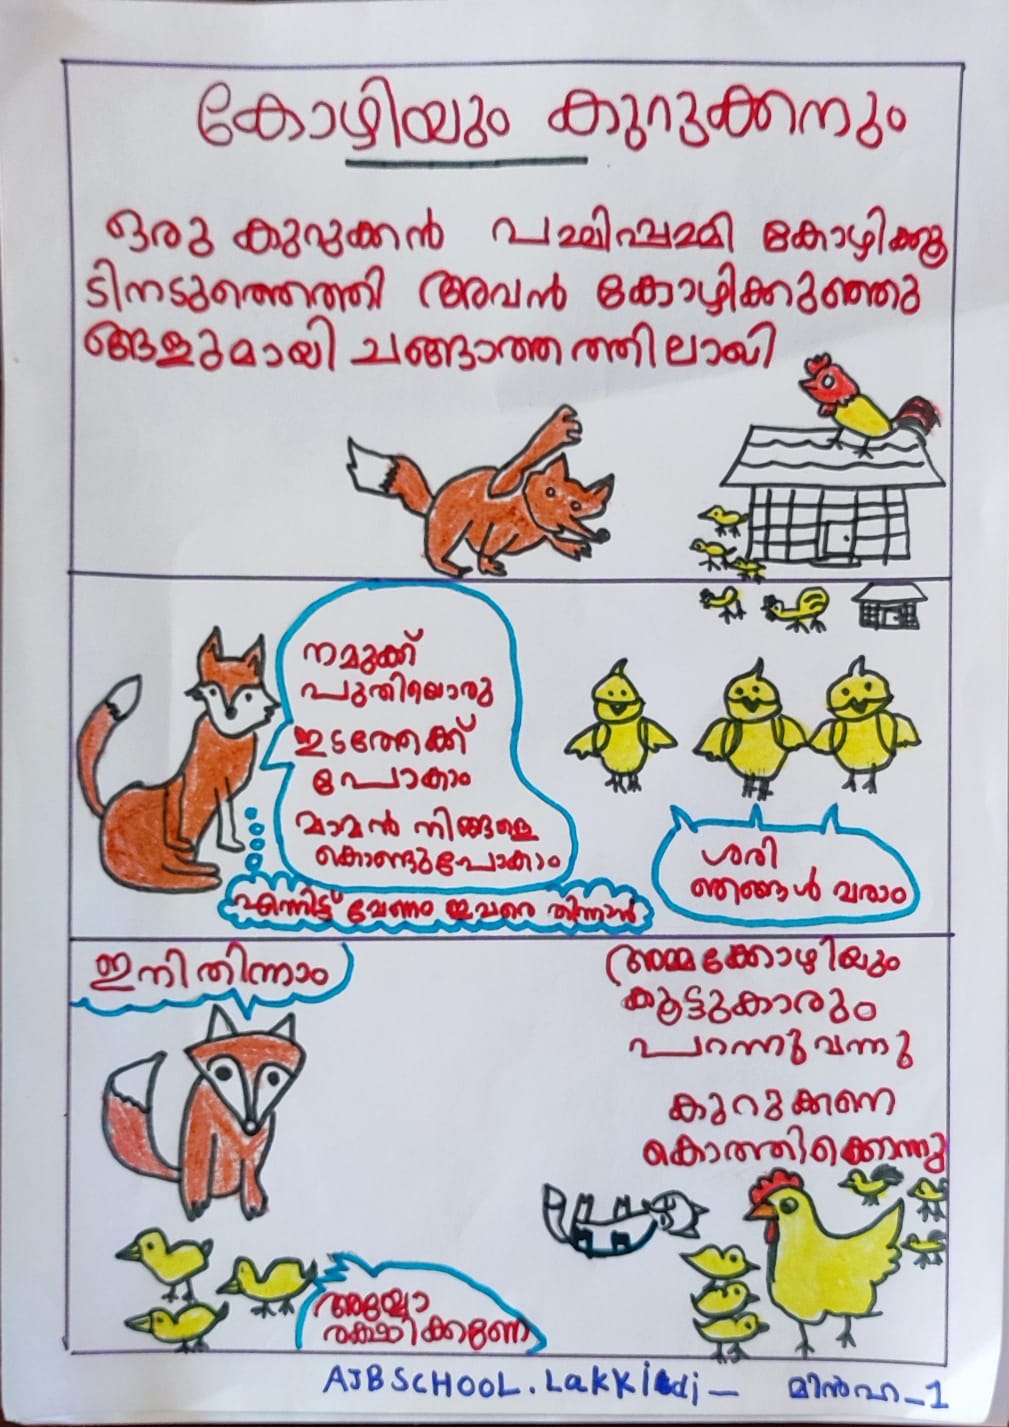 കോഴിയും കുറുക്കനും
ഒരു കുറുക്കൻ പമ്മിപ്പമ്മി കോഴിക്കൂ
ടിനടുത്തെത്തി അവൻ കോഴിക്കുഞ്ഞു
ങ്ങളുമായി ചങ്ങാത്തത്തിലായി
നമുക്ക്
പുതിയൊരു
ഇടത്തേക്ക്
പോകാം
മാമൻ നിങ്ങളെ
കൊണ്ടുപോകാം
എന്നിട്ട് വേണം ഇവരെ തിന്നാൻ
ശരി
ഞങ്ങൾ വരാം
ഇനി തിന്നാം
അയ്യോ
രക്ഷിക്കണേ
അമ്മക്കോഴിയും
കൂട്ടുകാരും
പറന്നു വന്നു
കുറുക്കനെ
കൊത്തിക്കൊന്നു
AJB SCHOOL. Lakkidi — മിൻഹ - 1